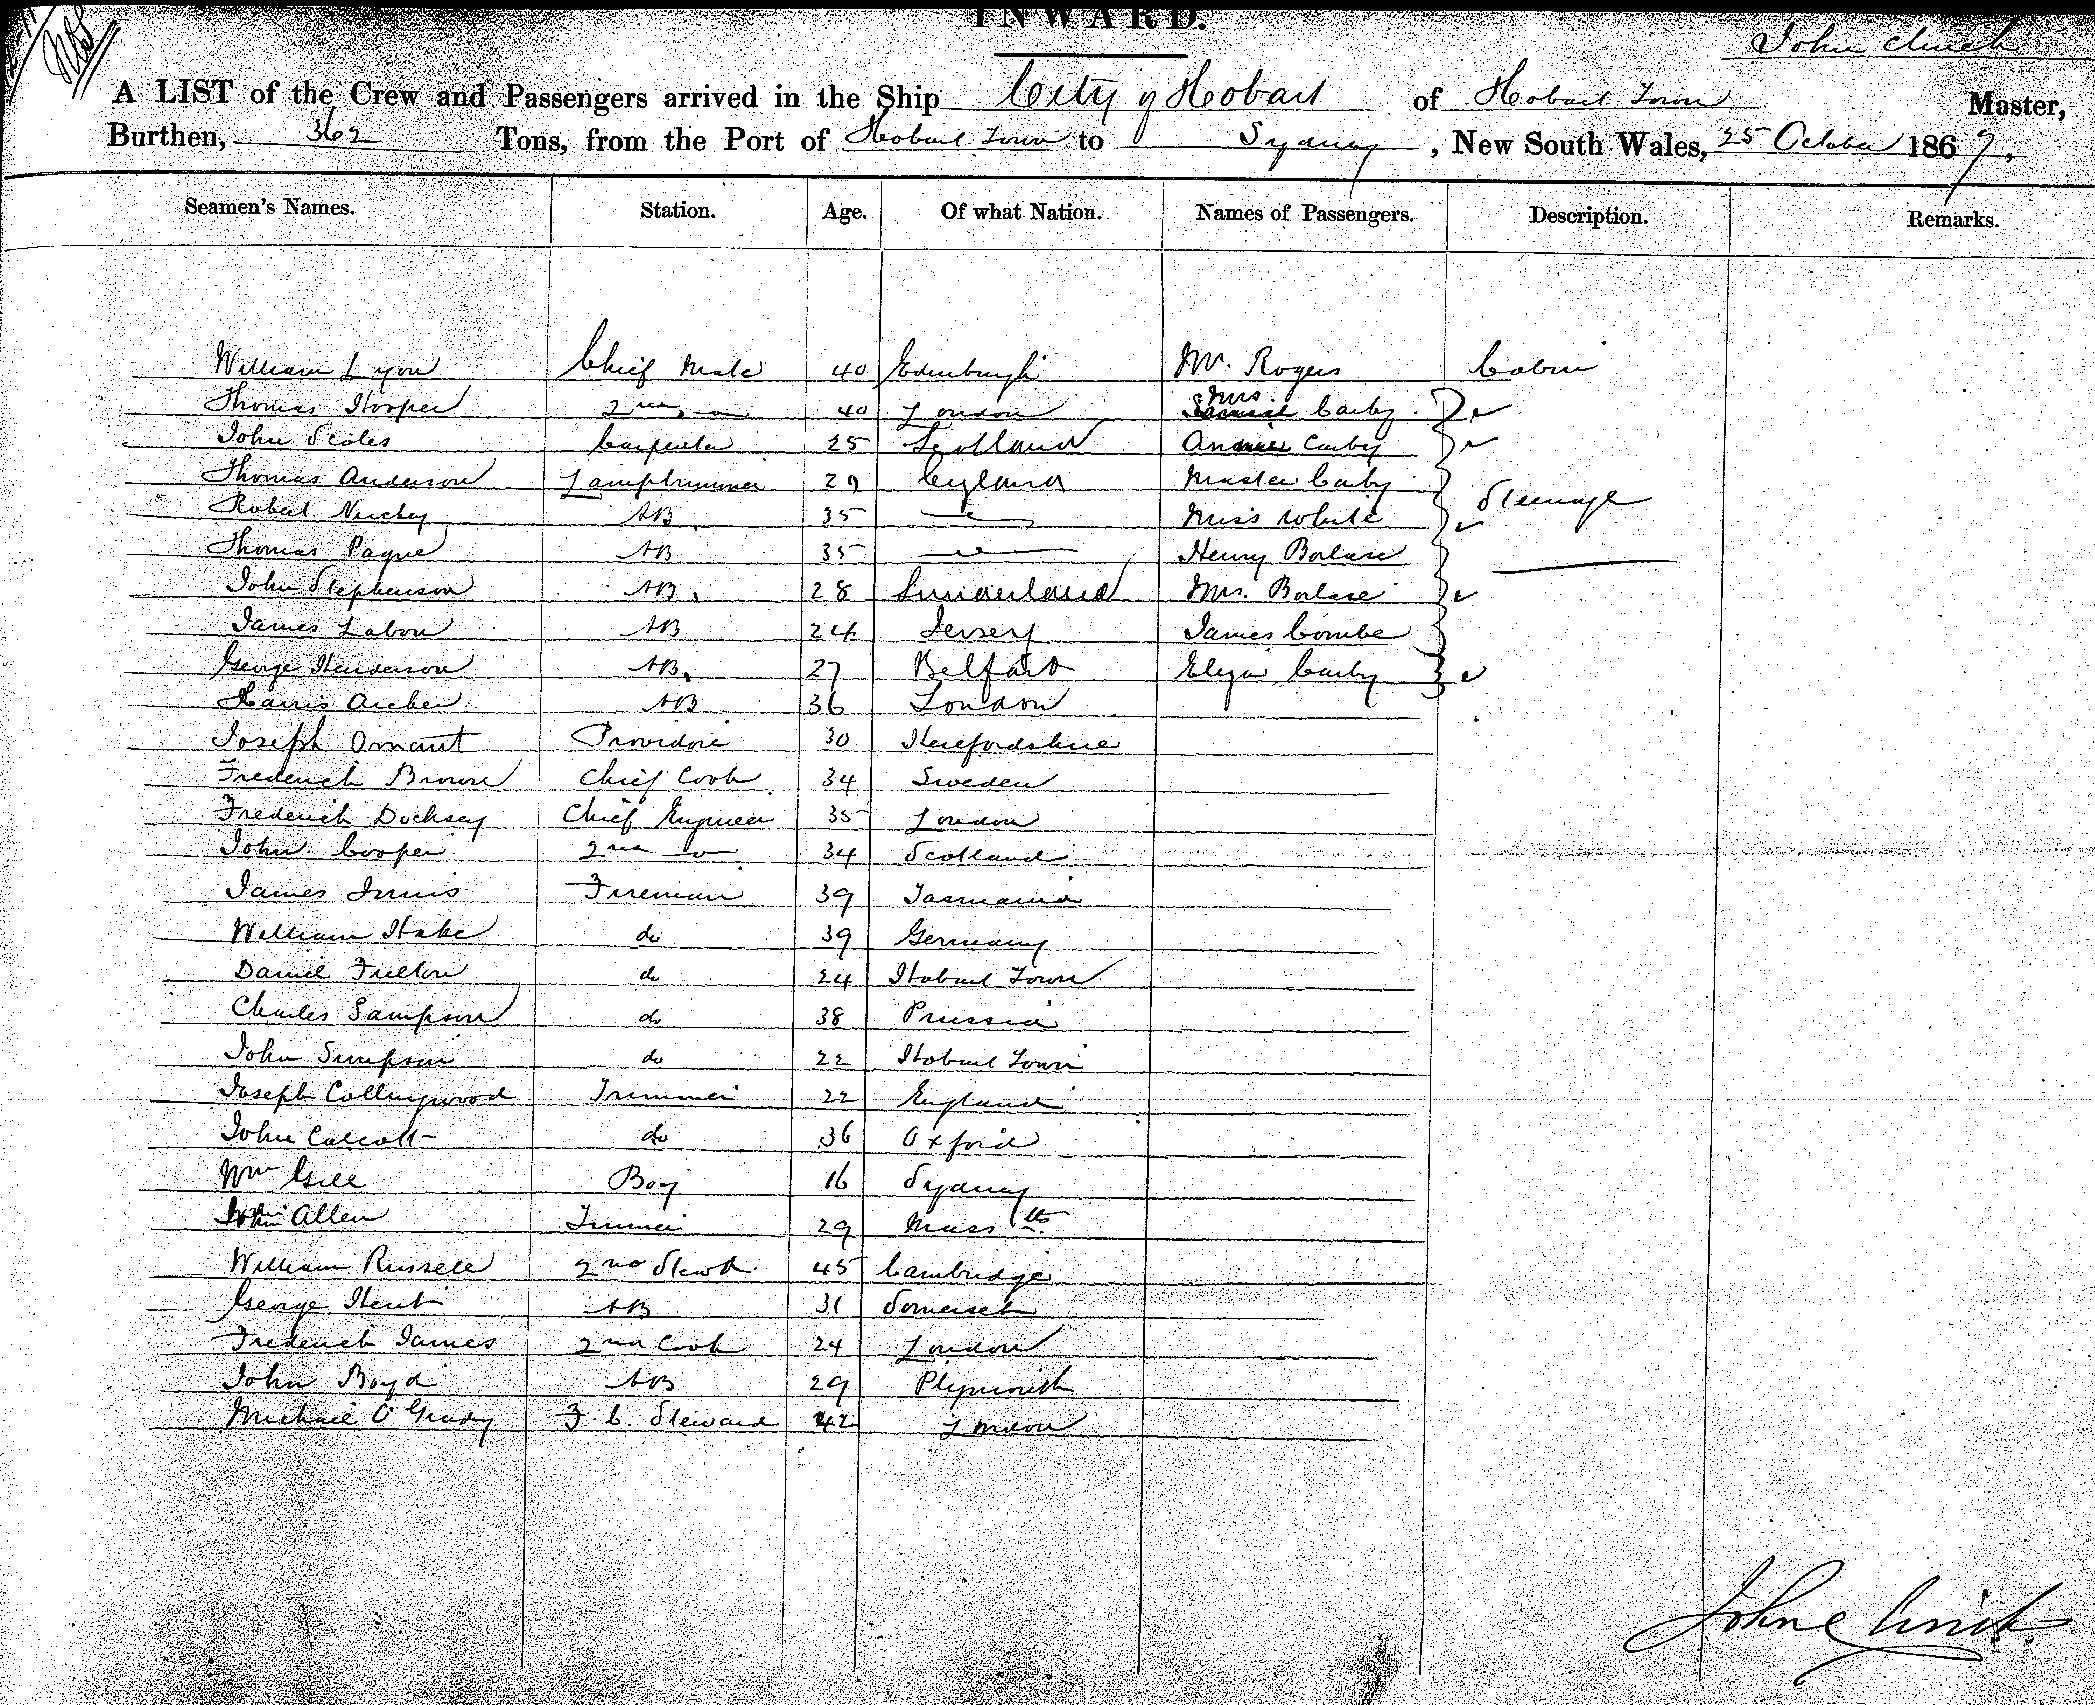 INWARD.
John Clinch
A LIST of the Crew and Passengers arrived in the Ship City of Hobart of Hobart Town Master,
Burthen, 362 Tons, from the Port of Hobart Town to Sydney, New South Wales, 25 October 1867.
Seamen's Names. Station. Age. Of what Nation. Names of Passengers. Description. Remarks.
William Lyon Chief Mate 40 Edinburgh Mr. Rogers Cabin
Thomas Hooper 2nd do 40 London Mrs. Carby
John Scoles Carpenter 25 Scotland Carby
Thomas Anderson Lamptrimmer 29 England Master Carby
Robert AB 35 Miss White Steerage
Thomas Payne AB 35 Henry Borlase
John Stephenson AB. 28 Sunderland Mrs. Borlase
James Labon AB 24 Jersey James Combe
George Henderson AB. 27 Belfast Eliza Carby
Harris Archer AB 36 London
Joseph Omant Providore 30 Herefordshire
Frederick Brown Chief Cook 34 Sweden
Frederick Docksey Chief Engineer 35 London
John Cooper 2nd do 34 Scotland
James Innis Fireman 39 Tasmania
William Hake do 39 Germany
Daniel Fulton do 24 Hobart Town
Charles Sampson do 38 Prussia
John Simpson do 22 Hobart Town
Joseph Collingwood Trimmer 22 England
John Calcott do 36 Oxford
Wm Gill Boy 16 Sydney
John Allen Trimmer 29 Masstts
William Russell 2nd Stewd 45 Cambridge
George Hunt AB 31 Somerset
Frederick James 2nd Cook 24 London
John Boyd AB 29 Plymouth
Michael O'Grady F. C. Steward 42 London
John Clinch